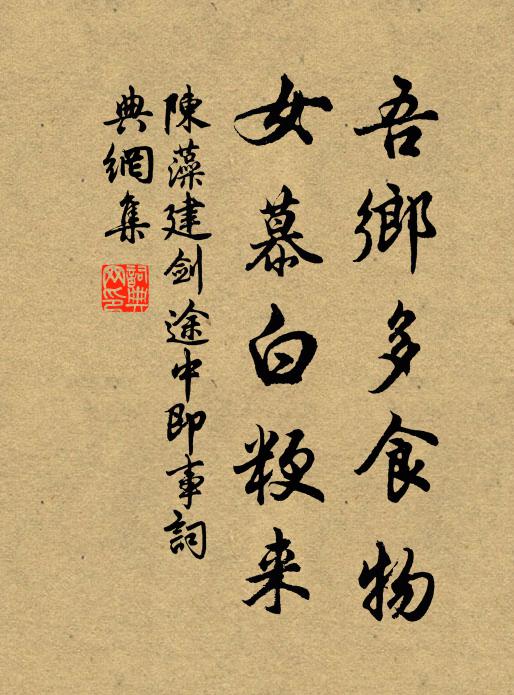 吾鄉多食物
女慕白粳来
陳藻建剑途中即事詞
典網集
詞典
网印